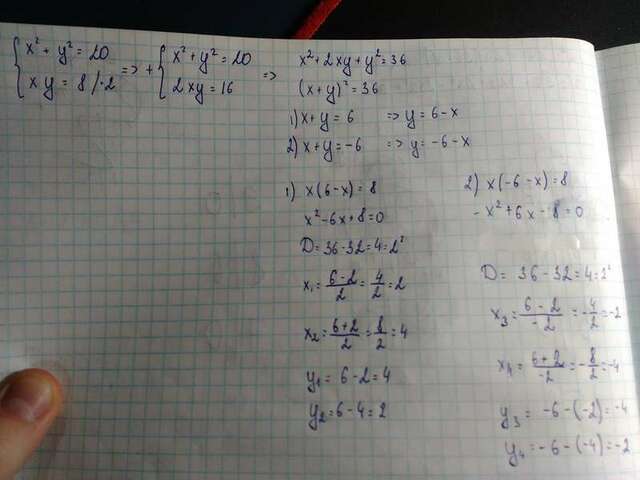 {x² + y² = 20
{xy = 8 /·2
=> + {x² + y² = 20
{2xy = 16
=> x² + 2xy + y² = 36
(x + y)² = 36
1) x + y = 6 => y = 6 - x
2) x + y = -6 => y = -6 - x
1) x(6 - x) = 8
x² - 6x + 8 = 0
D = 36 - 32 = 4 = 2²
x₁ = (6 - 2)/2 = 4/2 = 2
x₂ = (6 + 2)/2 = 8/2 = 4
y₁ = 6 - 2 = 4
y₂ = 6 - 4 = 2
2) x(-6 - x) = 8
-x² + 6x - 8 = 0
D = 36 - 32 = 4 = 2²
x₃ = (6 - 2)/-2 = -4/2 = -2
x₄ = (6 + 2)/-2 = -8/2 = -4
y₃ = -6 - (-2) = -4
y₄ = -6 - (-4) = -2